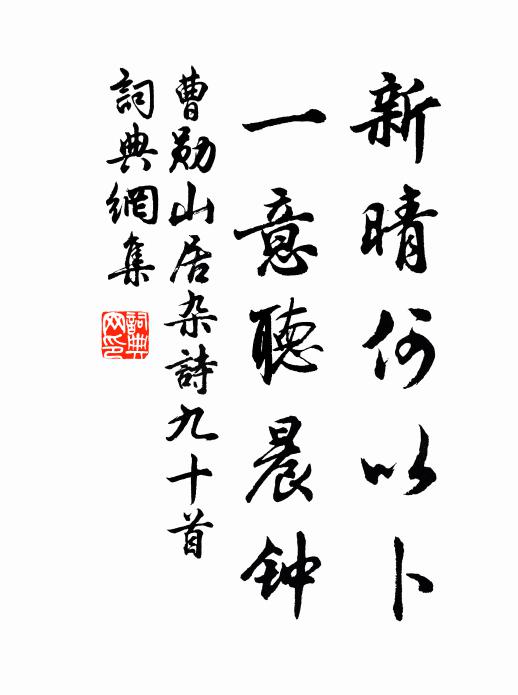 新晴何以卜
一意聽晨钟
曹勋山居杂詩九十首
詞典網集
詞典网印